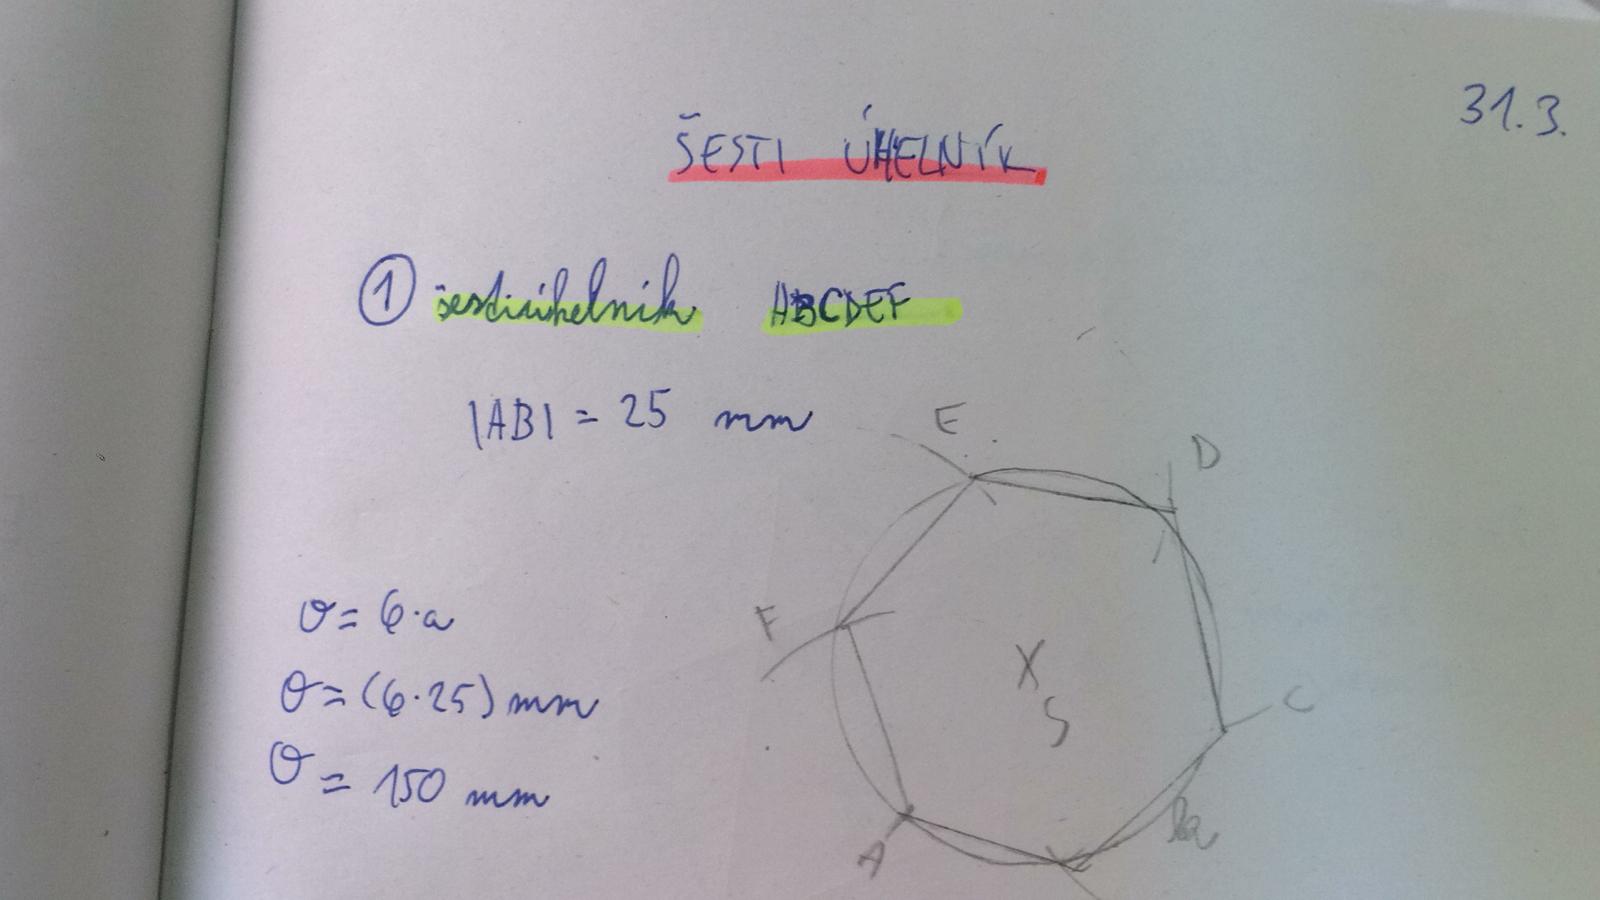 31.3.
ŠESTI ÚHELNÍK
1 šestiúhelník ABCDEF
|AB| = 25 mm
E
D
o = 6·a
F
o = (6·25) mm
X
S
C
o = 150 mm
A